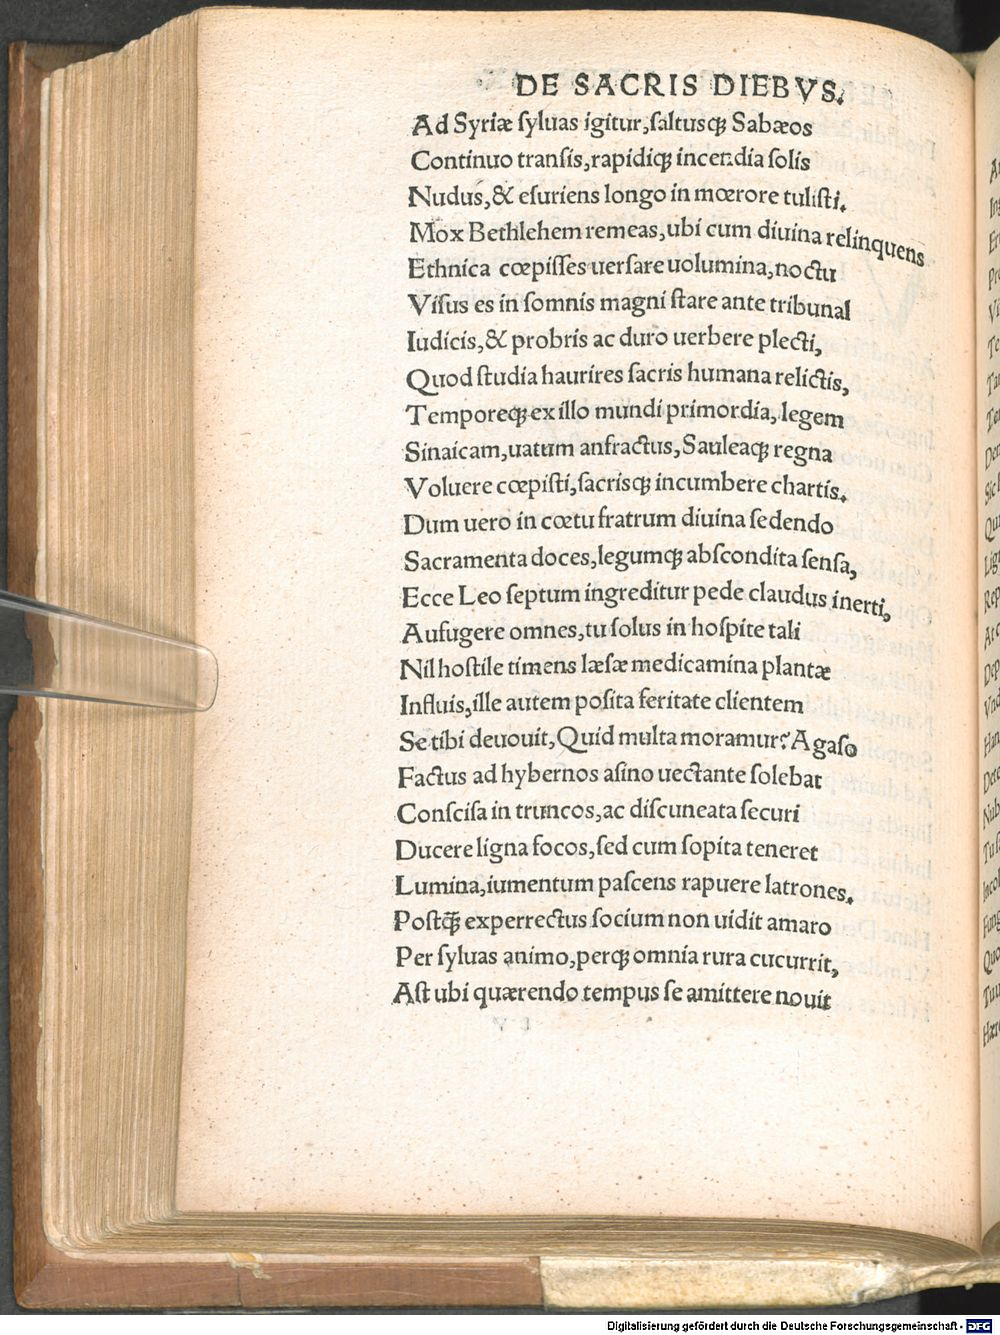 DE SACRIS DIEBVS.
Ad Syriæ ſyluas igitur,ſaltusq; Sabæos
Continuo tranſis,rapidiq; incendia ſolis
Nudus,& eſuriens longo in mœrore tuliſti.
Mox Bethlehem remeas,ubi cum diuina relinquens
Ethnica cœpiſſes uerſare uolumina,noctu
Viſus es in ſomnis magni ſtare ante tribunal
Iudicis,& probris ac duro uerbere plecti,
Quod ſtudia haurires ſacris humana relictis,
Temporeq; ex illo mundi primordia,legem
Sinaicam,uatum anfractus,Sauleaq; regna
Voluere cœpiſti,ſacrisq; incumbere chartis.
Dum uero in cœtu fratrum diuina ſedendo
Sacramenta doces,legumq; abſcondita ſenſa,
Ecce Leo ſeptum ingreditur pede claudus inerti,
Aufugere omnes,tu ſolus in hoſpite tali
Nil hoſtile timens læſæ medicamina plantæ
Influis,ille autem poſita feritate clientem
Se tibi deuouit,Quid multa moramur? Agaſo
Factus ad hybernos aſino uectante ſolebat
Conſciſa in truncos,ac diſcuneata ſecuri
Ducere ligna focos,ſed cum ſopita teneret
Lumina,iumentum paſcens rapuere latrones.
Poſtq̃ experrectus ſocium non uidit amaro
Per ſyluas animo,perq; omnia rura cucurrit,
Aſt ubi quærendo tempus ſe amittere nouit
Digitalisierung gefördert durch die Deutsche Forschungsgemeinschaft - DFG